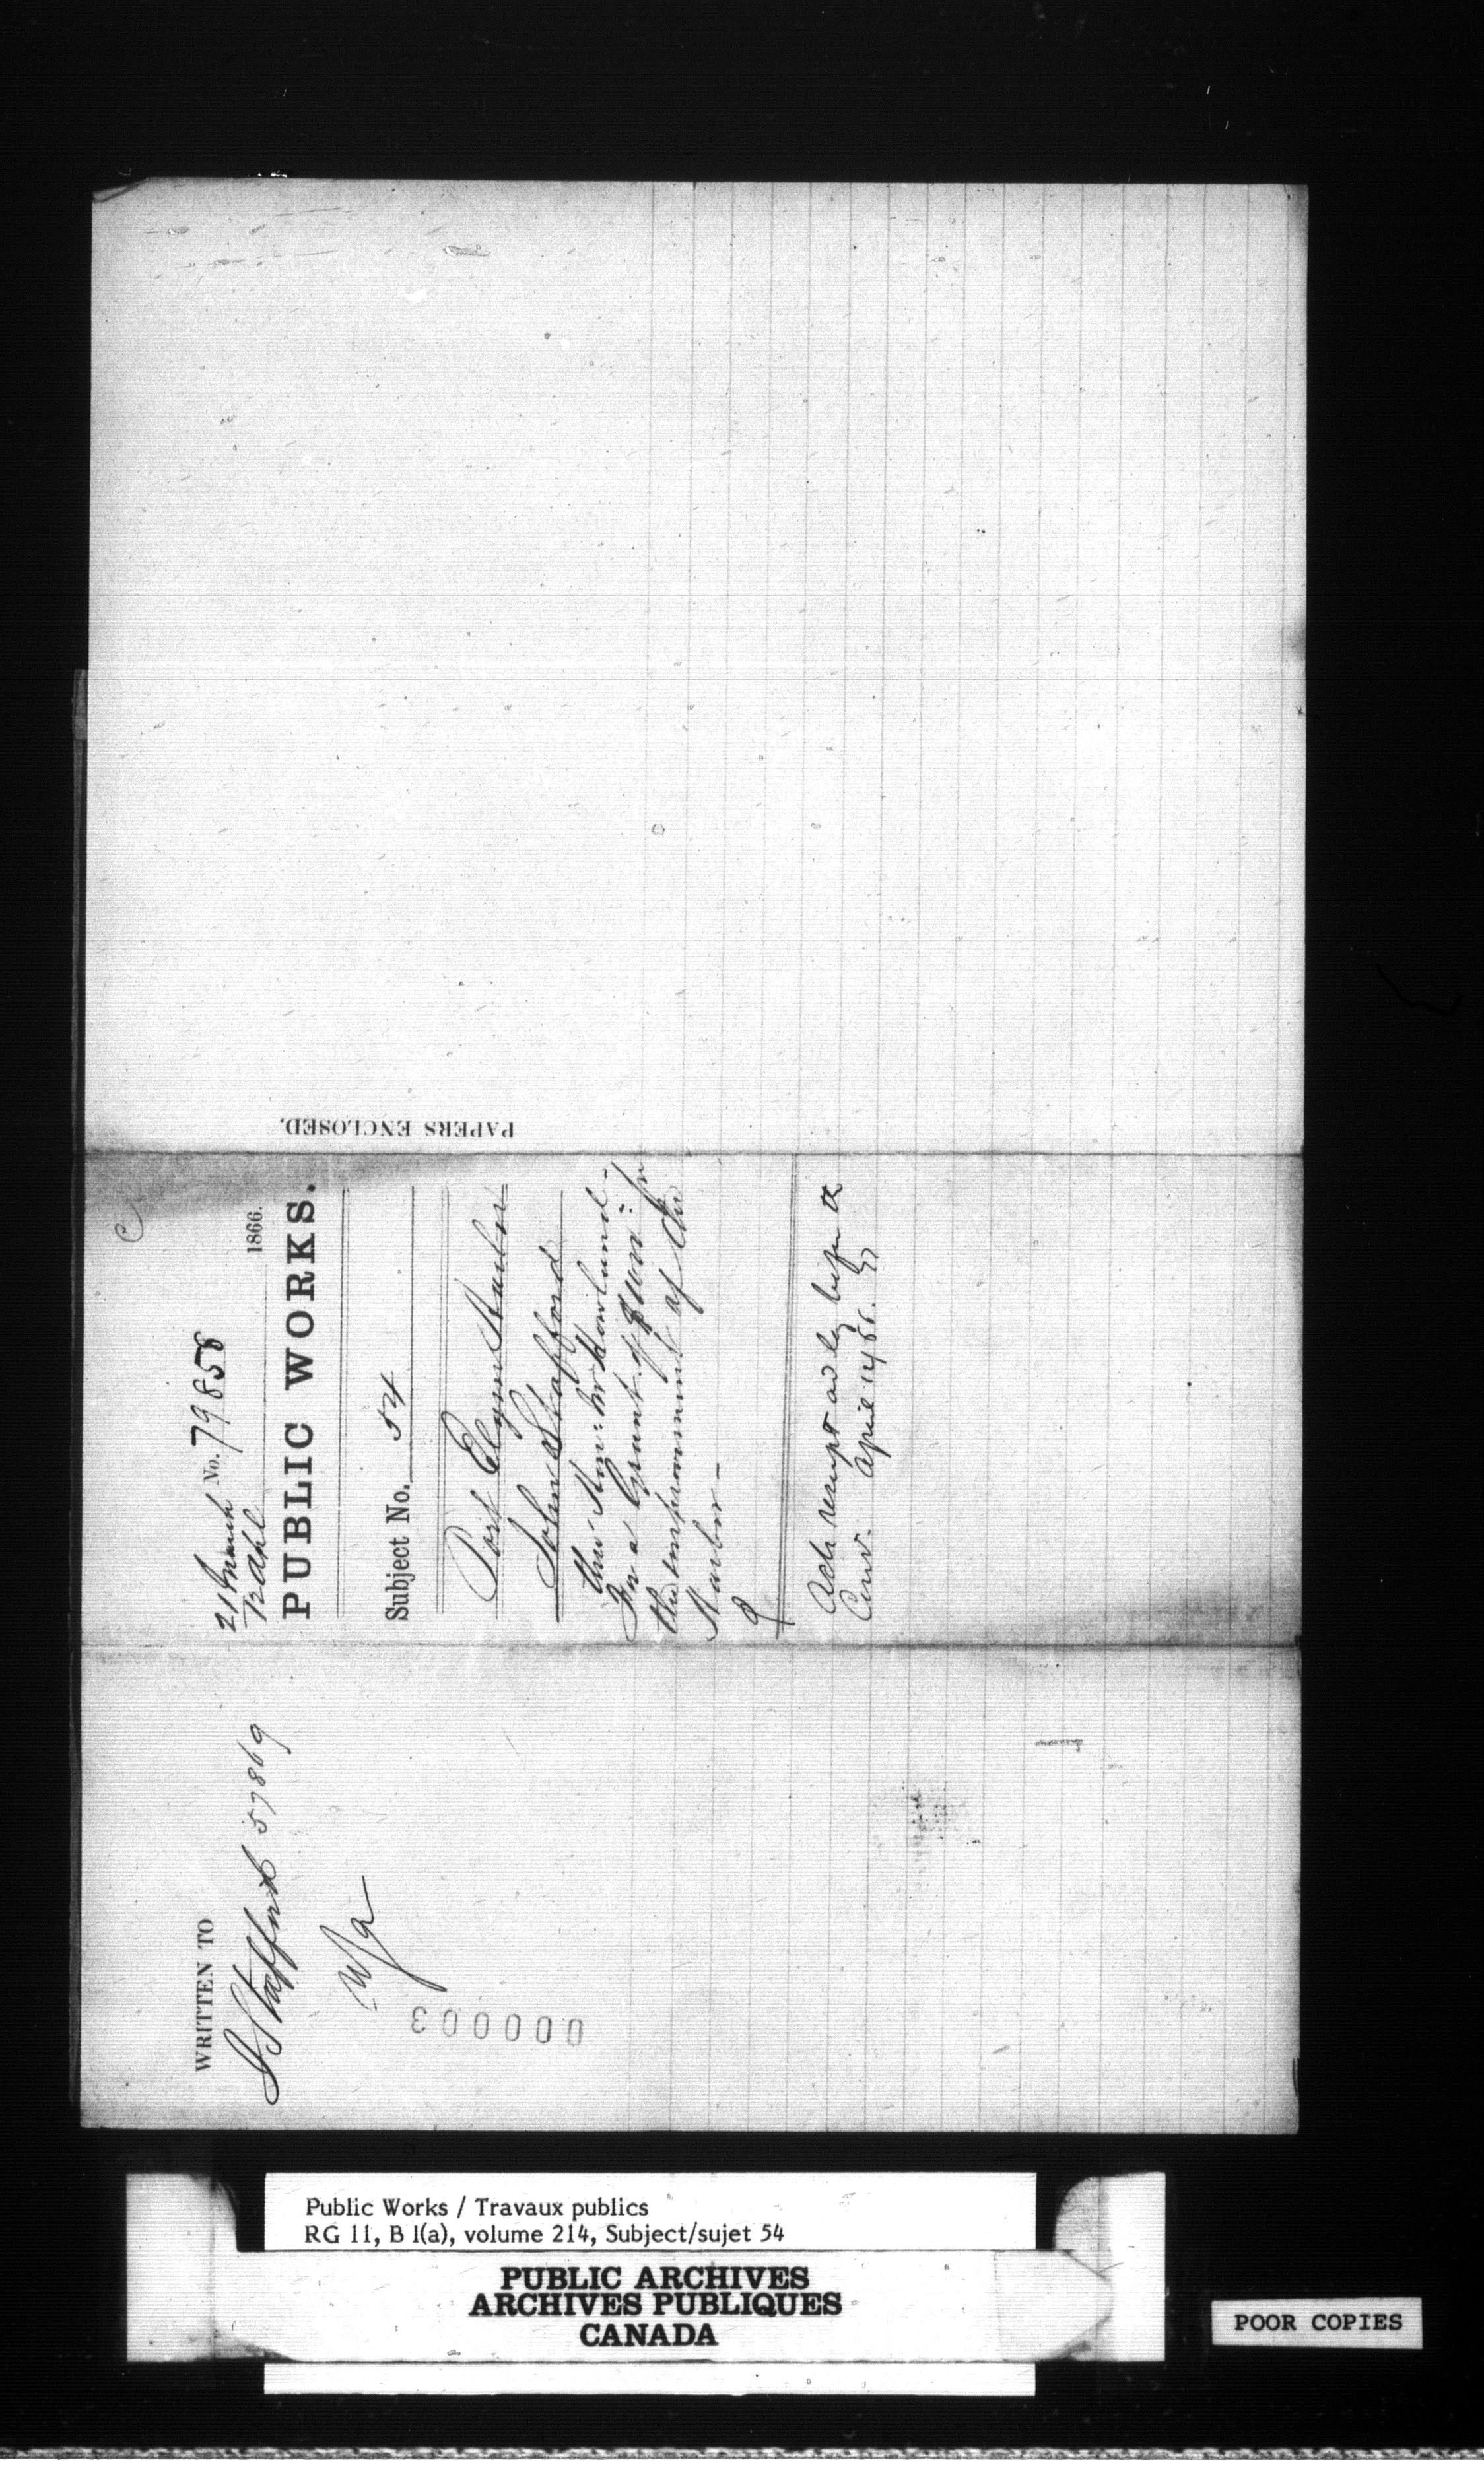 WRITTEN TO
J Stafford 57869
000003
C
21 March No. 79858
12 Apl 1866.
PUBLIC WORKS.
Subject No. 54
Port Elgin Harbor
John Stafford
thro Hon: Mr Howland -
For a Grant of $1000: for
the improvement of the
Harbor -
Ack receipt as
April 14 66.
PAPERS ENCLOSED.
Public Works / Travaux publics
RG 11, B 1(a), volume 214, Subject/sujet 54
PUBLIC ARCHIVES
ARCHIVES PUBLIQUES
CANADA
POOR COPIES